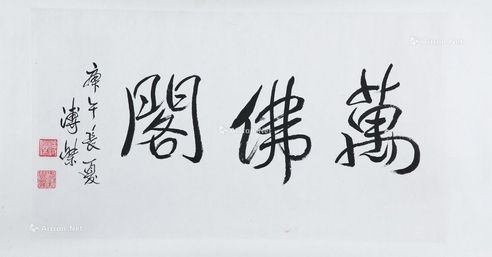 萬佛閣
庚午長夏
溥傑
Artron.Net
Artron.Net
Artron.Net